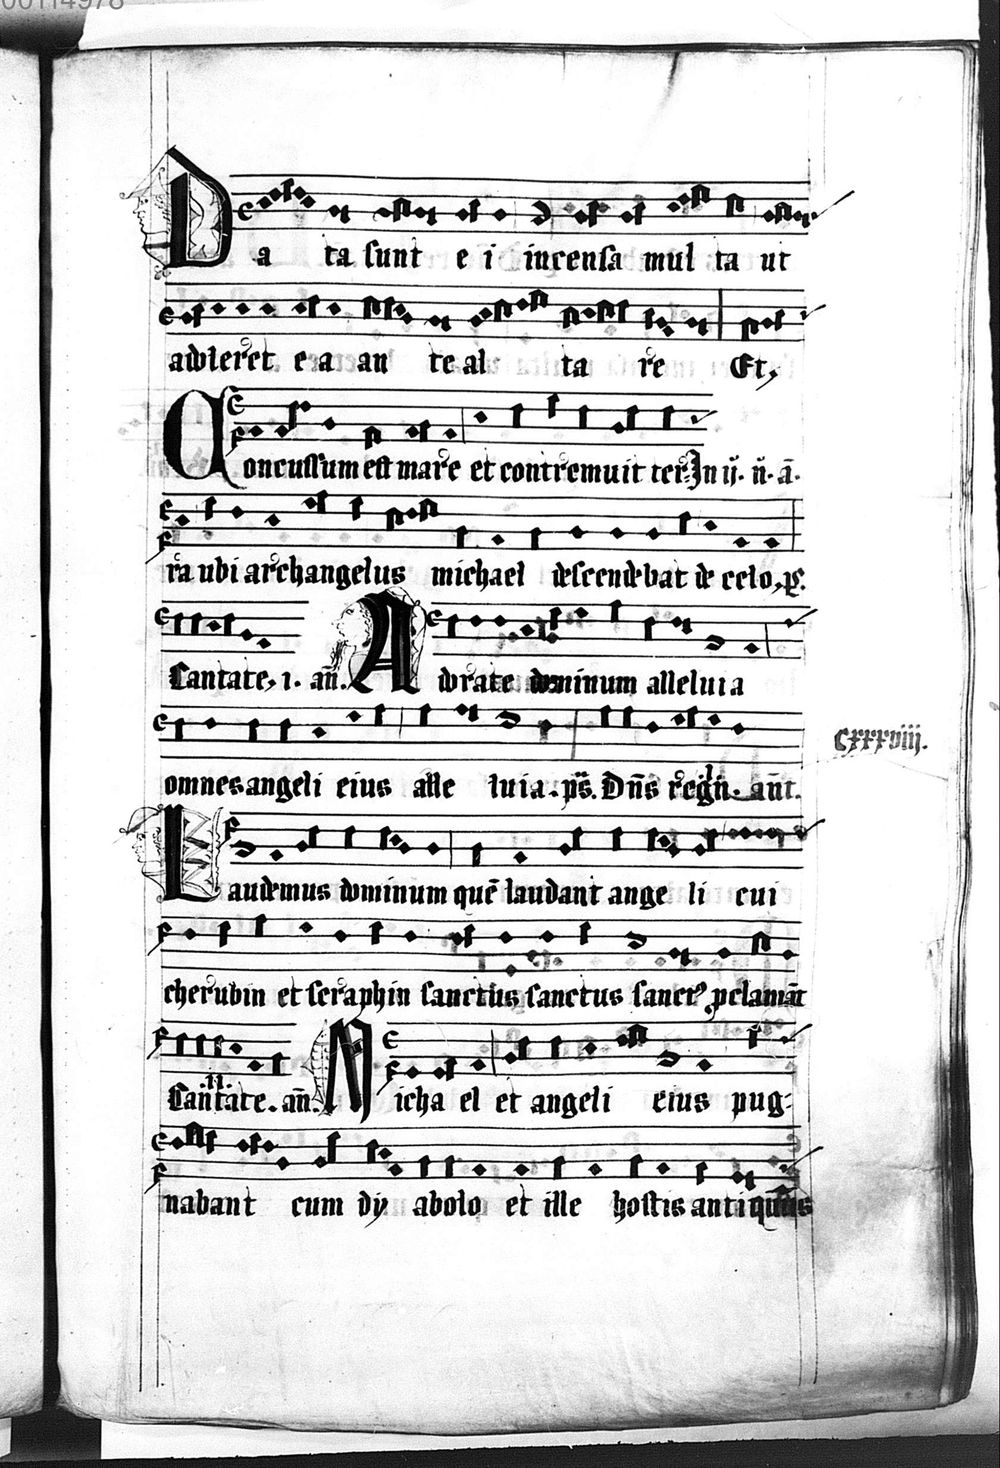 00114978
Da ta sunt e i incensa mul ta ut
adoleret ea an te al ta re Et,
Concussum est mare et contremuit ter In ij. n̄. ā.
ra ubi archangelus michael descendebat de celo, p̄s.
Cantate, i. an̄. Adorate dominum alleluia
omnes angeli eius alle luia. ps̄. Dn̄s regn̄. an̄t.
CXXXViii.
Laudemus dominum quē laudant ange li cui
cherubin et seraphin sanctus sanctus sanctꝰ ꝓclamāt
Cantate. an̄. Micha el et angeli eius pug-
nabant cum dy abolo et ille hostis antiquus